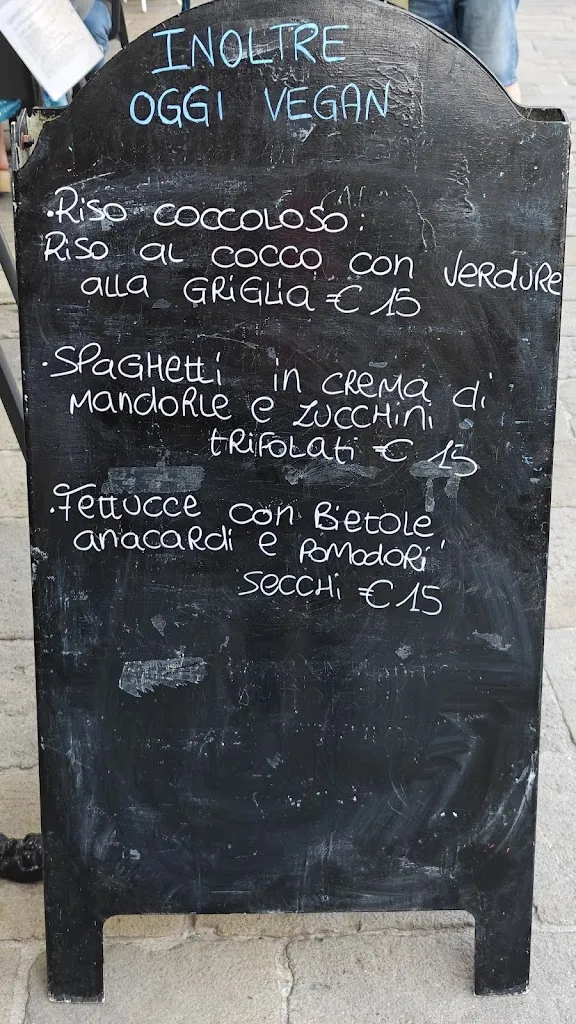 INOLTRE
OGGI VEGAN
·RiSO COCCOLOSO:
RiSO AL COCCO CON VERDURE
ALLA GRiGLiA = € 15
·SPAGHETTi in CREMA di
MANDORLE e ZUCCHiNi
TRiFOLATi = € 15
·FETTUCCE CON BiETOLE
ANACARDi e POMODORi
SECCHi = € 15